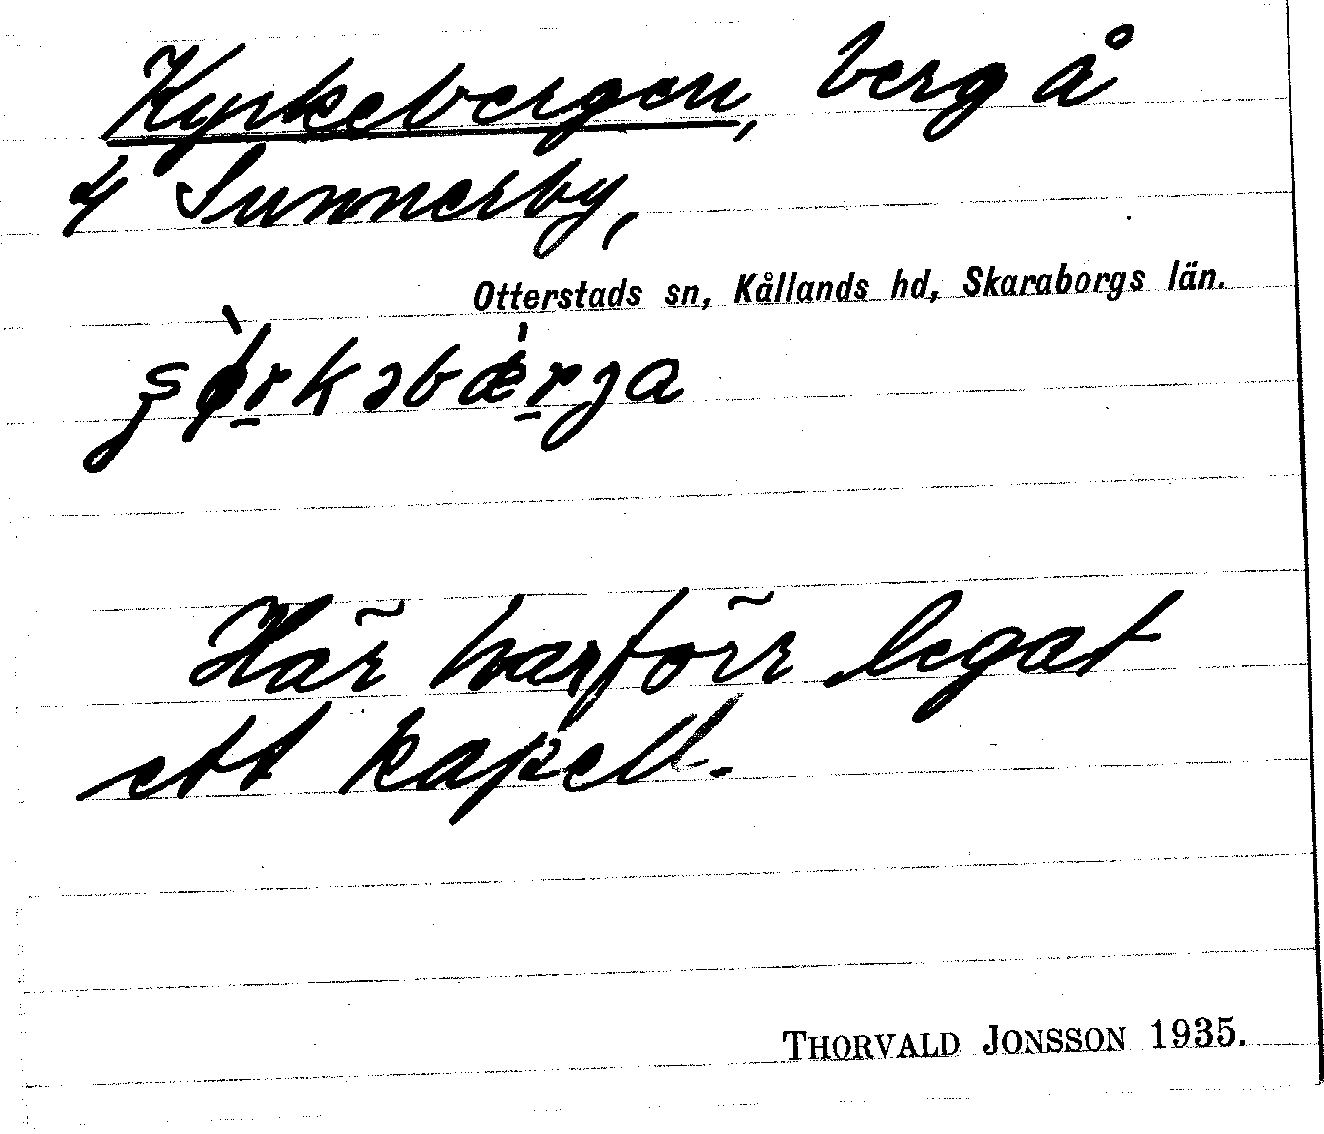 Kyrkebergen, berg å
4 Sunnerby,
Otterstads sn, Kållands hd, Skaraborgs län.
ʂø̀rkəbæ̀rja
Här har förr legat
ett kapell.
THORVALD JONSSON 1935.